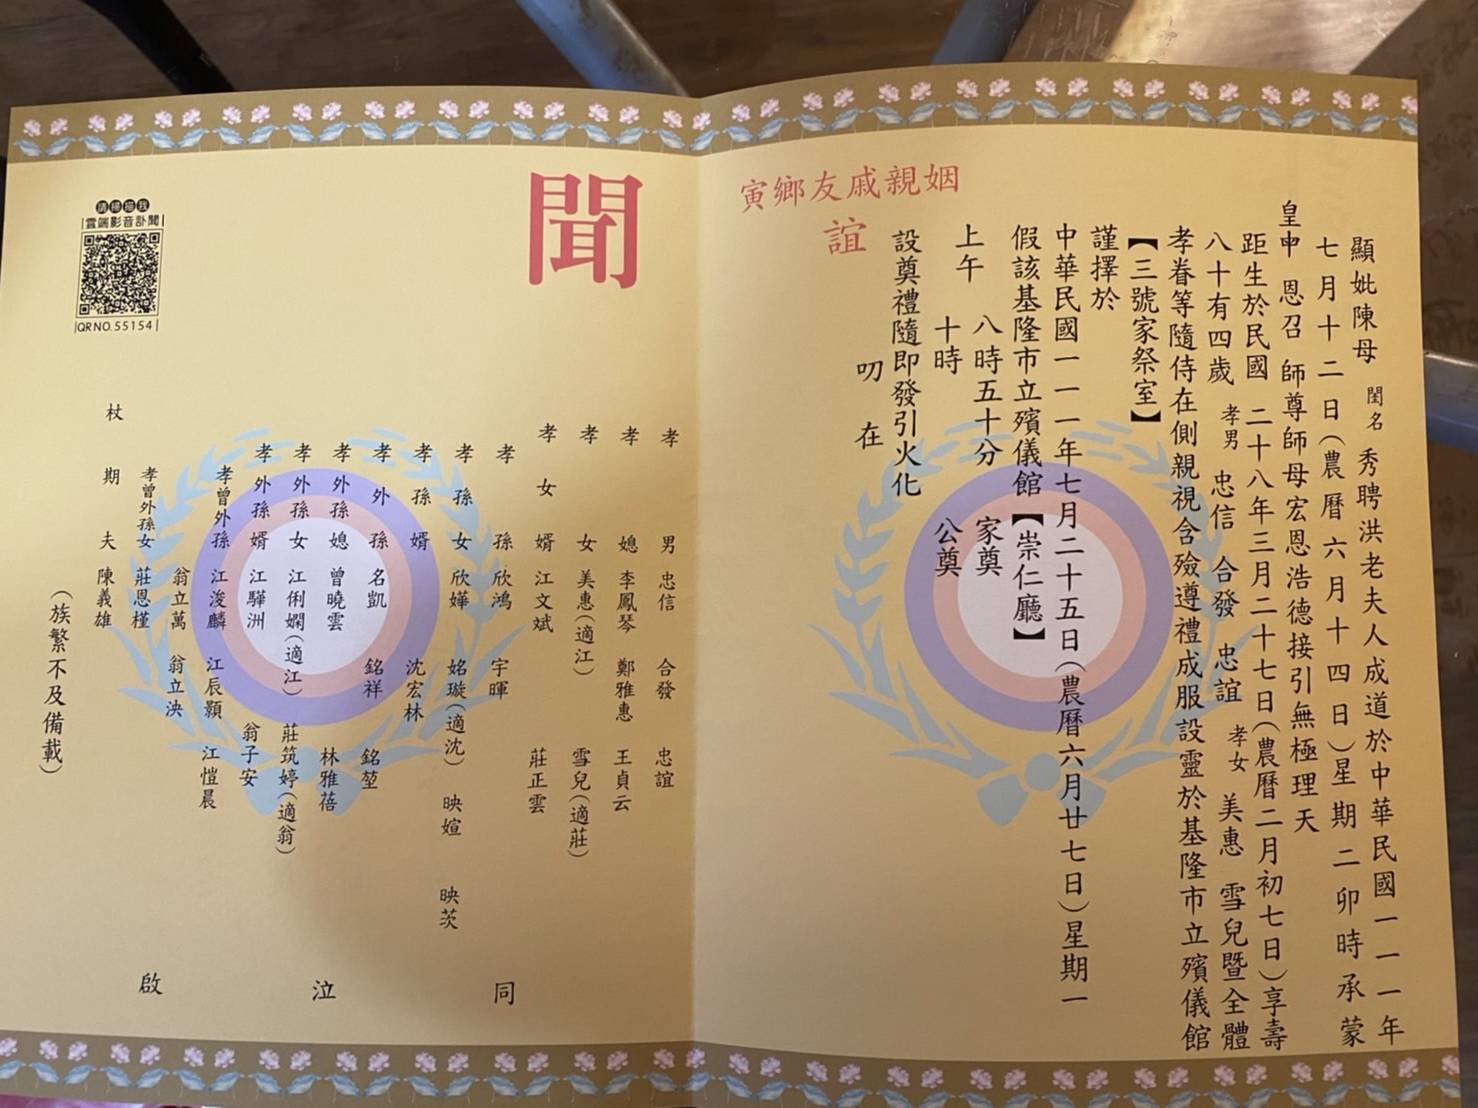 顯妣陳母 閨名 秀聘洪老夫人成道於中華民國一一一年
七月十二日(農曆六月十四日)星期二卯時承蒙
皇申 恩召 師尊師母宏恩浩德接引無極理天
距生於民國 二十八年三月二十七日(農曆二月初七日)享壽
八十有四歲 孝男 忠信 合發 忠誼 孝女 美惠 雪兒暨全體
孝眷等隨侍在側親視含殮遵禮成服設靈於基隆市立殯儀館
【三號家祭室】
謹擇於
中華民國一一一年七月二十五日(農曆六月廿七日)星期一
假該基隆市立殯儀館【崇仁廳】
上午 八時五十分 家奠
十時 公奠
設奠禮隨即發引火化
叨在
姻親戚友鄉寅
誼
聞
孝男 忠信 合發 忠誼
孝媳 李鳳琴 鄭雅惠 王貞云
孝女 美惠(適江) 雪兒(適莊)
孝女婿 江文斌 莊正雲
孝孫 欣鴻 宇暉
孝孫女 欣嬅 姳璇(適沈) 映媗 映茨
孝孫婿 沈宏林
孝外孫 名凱 銘祥 銘堃
孝外孫媳 曾曉雲 林雅蓓
孝外孫女 江俐嫻(適江) 莊筑婷(適翁)
孝外孫婿 江驊洲 翁子安
孝曾外孫 江浚麟 江辰顥 江愷晨
翁立萬 翁立泱
孝曾外孫女 莊恩槿
杖期夫 陳義雄
(族繁不及備載)
同泣啟
請掃描我
雲端影音訃聞
QR NO. 55154